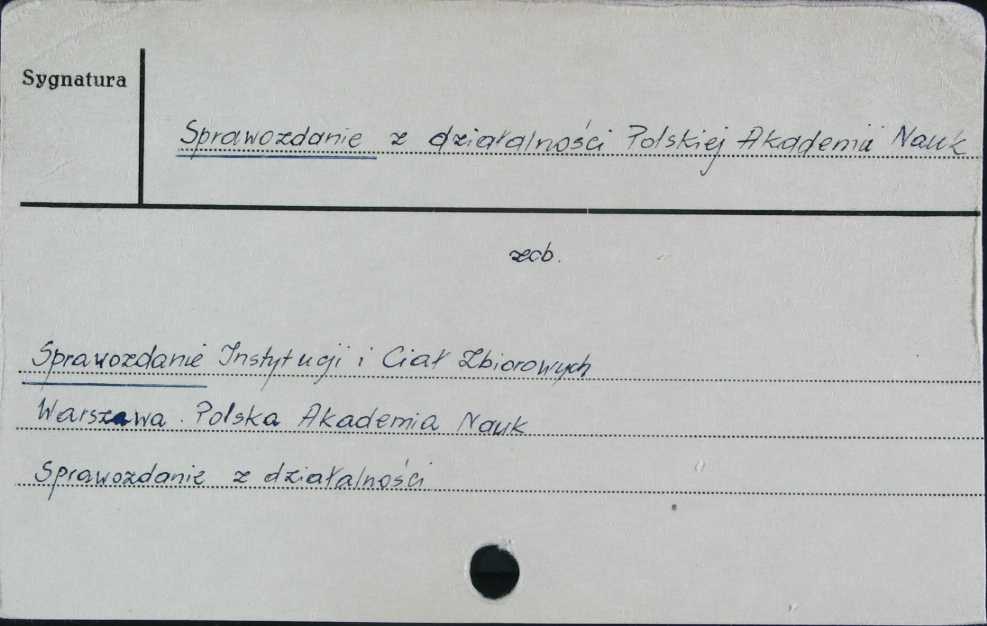 Sygnatura
Sprawozdanie z działalności Polskiej Akademii Nauk
zob.
Sprawozdanie Instytucji i Ciał Zbiorowych
Warszawa. Polska Akademia Nauk
Sprawozdanie z działalności